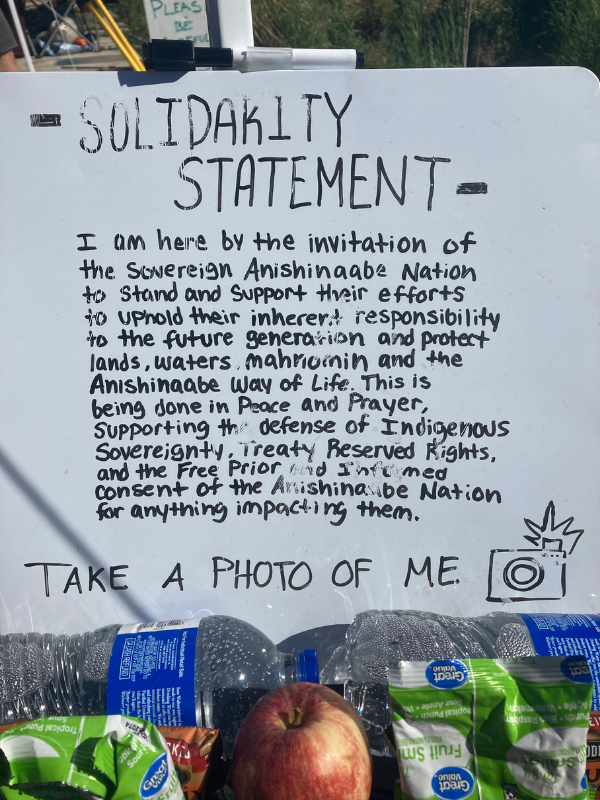 PLEAS
BE
- SOLIDARITY
STATEMENT -
I am here by the invitation of
the Sovereign Anishinaabe Nation
to Stand and Support their efforts
to uphold their inherent responsibility
to the future generation and protect
lands, waters, mahnomin and the
Anishinaabe Way of Life. This is
being done in Peace and Prayer,
Supporting the defense of Indigenous
Sovereignty, Treaty Reserved Rights,
and the Free Prior and Informed
consent of the Anishinaabe Nation
for anything impacting them.
TAKE A PHOTO OF ME.
Great Value
Tropical Punch
Sour Apple
Fruit Sm
Great Value
Great Value
Tropical Punc
Great Value